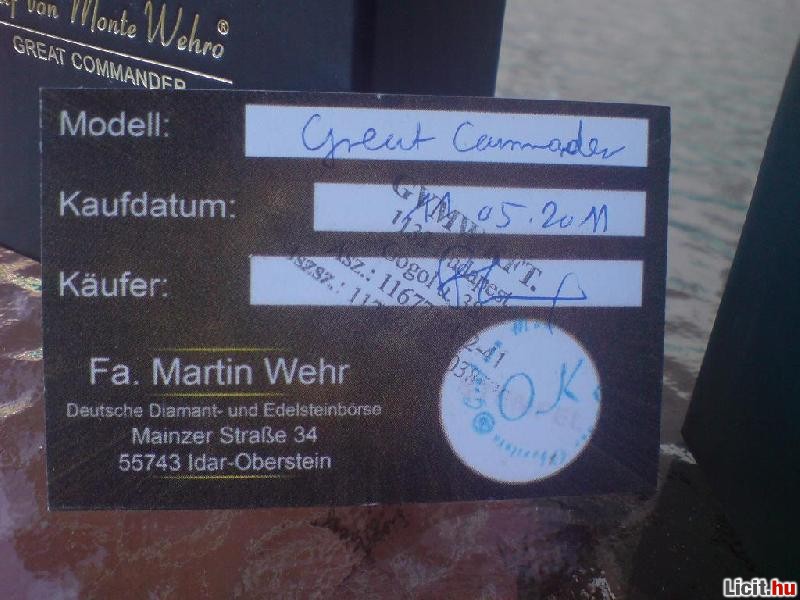 von Monte Wehro®
GREAT COMMANDER
Modell: Great Commander
Kaufdatum: 11.05.2011
Käufer:
GYMV KFT.
Budapest
Gogol u.
Asz.: 1167
2-41
Fa. Martin Wehr
Deutsche Diamant- und Edelsteinbörse
Mainzer Straße 34
55743 Idar-Oberstein
OK
Licit.hu